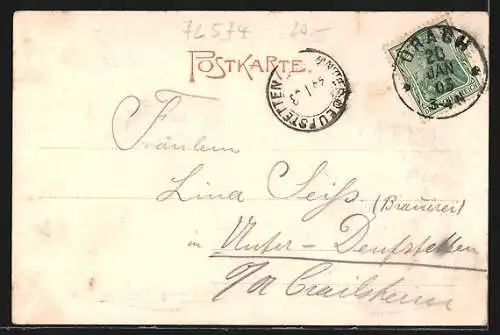 72574 20.-
POSTKARTE.
URACH
20
JAN
02
Fräulein
Lina Seiss (Brauerei)
in Unter-Deufstetten
O/A Crailsheim